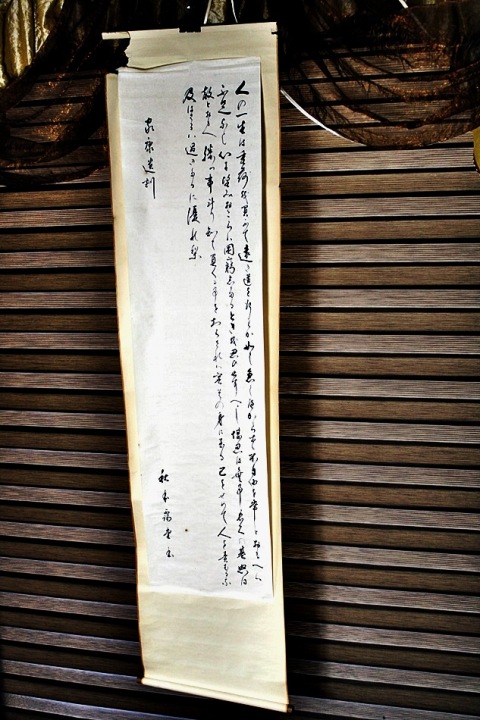 人の一生は重荷を負て遠き道を行くが如し急ぐべからず不自由を常とおもへば
不足なし心に望おこらば困窮したるときを思ひ出すべし堪忍は無事長久の基怒は
敵とおもへ勝つ事斗り知て負くる事をしらざれば害その身に至る己をせめて人を責むるな
及ばざるは過ぎたるに優れ梨
家康遺訓